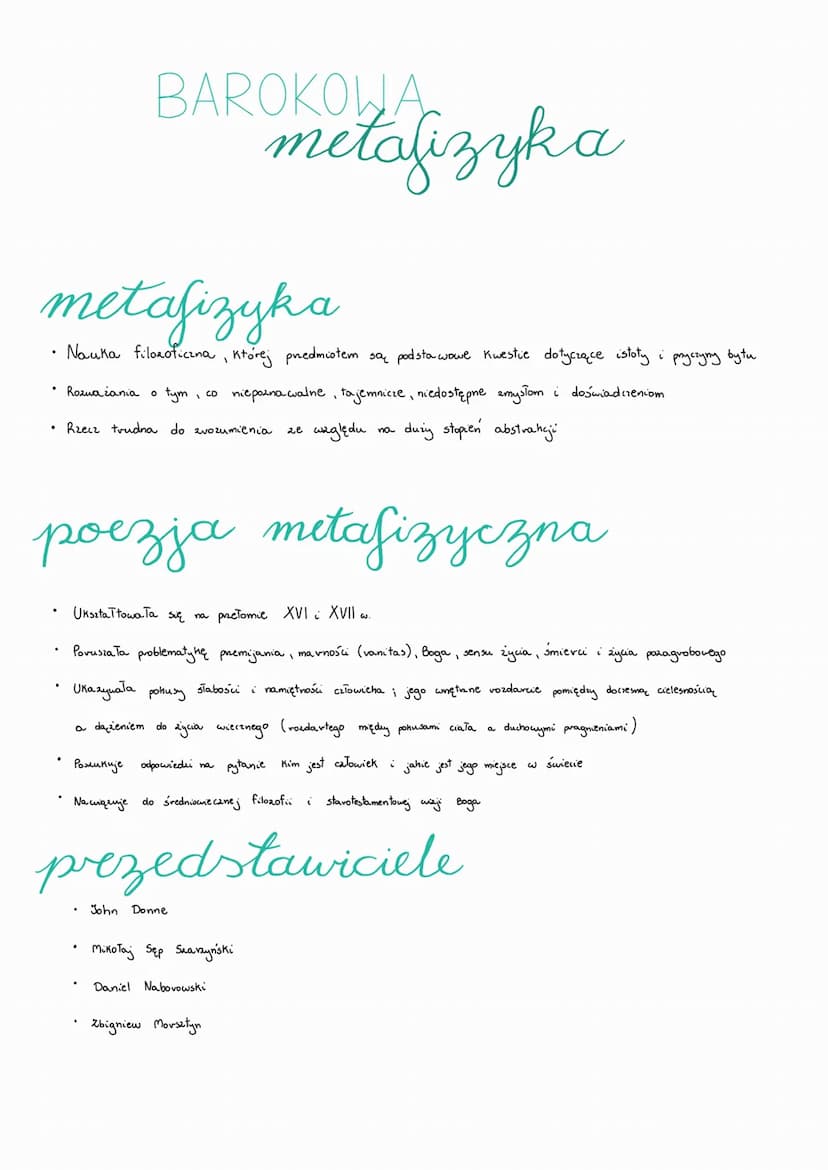 BAROKOWA
metafizyka
metafizyka
• Nauka filozoficzna, której przedmiotem są podstawowe kwestie dotyczące istoty i przyczyny bytu
• Rozważania o tym, co niepoznawalne, tajemnicze, niedostępne zmysłom i doświadczeniom
• Rzecz trudna do zrozumienia ze względu na duży stopień abstrakcji
poezja metafizyczna
• Ukształtowała się na przełomie XVI i XVII w.
• Poruszała problematykę przemijania, marności (vanitas), Boga, sensu życia, śmierci i życia pozagrobowego
• Ukazywała pokusy słabości i namiętności człowieka; jego wnętrzne rozdarcie pomiędzy doczesną cielesnością
a dążeniem do życia wiecznego (rozdartego między pokusami ciała a duchowymi pragnieniami)
• Poszukuje odpowiedzi na pytanie kim jest człowiek i jakie jest jego miejsce w świecie
• Nawiązuje do średniowiecznej filozofii i starotestamentowej wizji Boga
przedstawiciele
• John Donne
• Mikołaj Sęp Szarzyński
• Daniel Naborowski
• Zbigniew Morsztyn